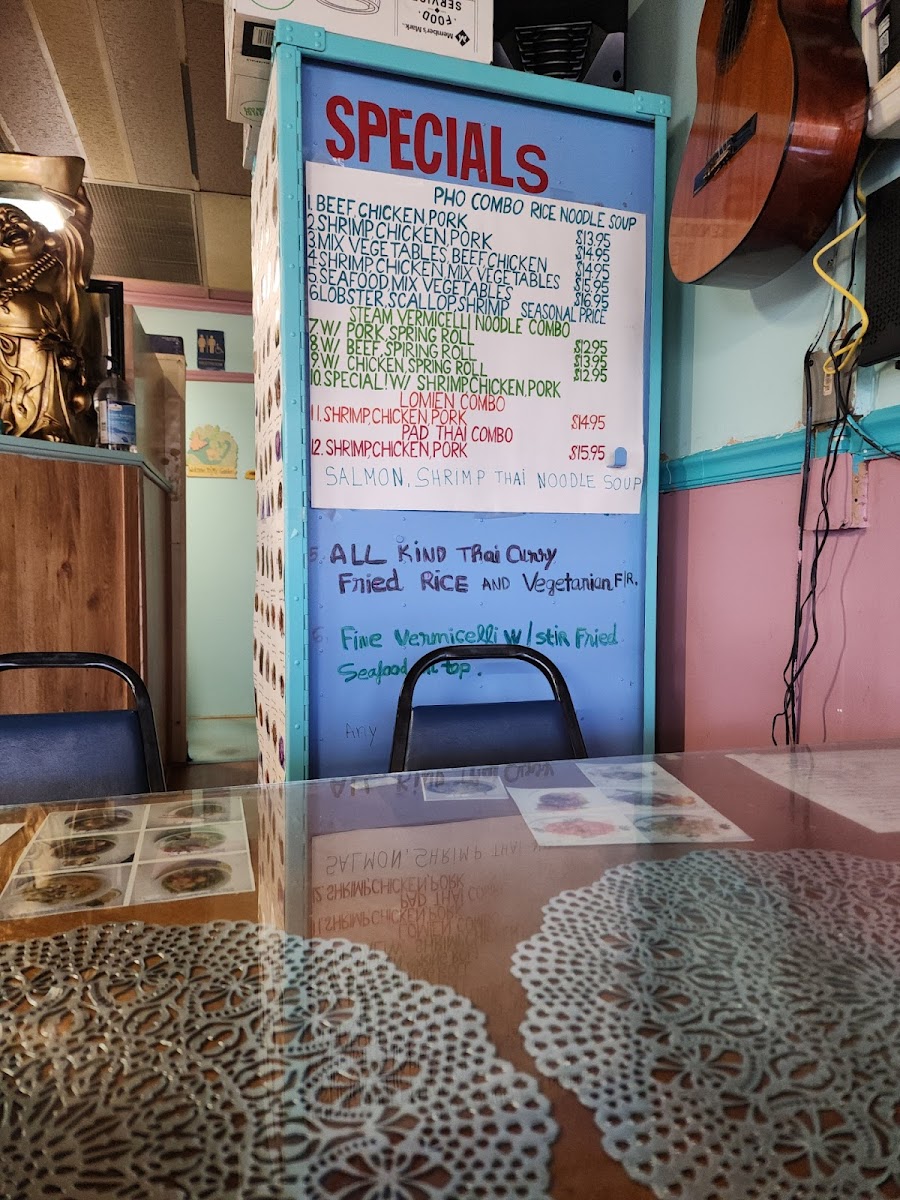 FOOD
SERVICE
Member's Mark
SPECIALS
PHO COMBO RICE NOODLE SOUP
1. BEEF, CHICKEN, PORK $13.95
2. SHRIMP, CHICKEN, PORK $14.95
3. MIX VEGETABLES, BEEF, CHICKEN $14.95
4. SHRIMP, CHICKEN MIX VEGETABLES $15.95
5. SEAFOOD, MIX VEGETABLES $16.95
6. LOBSTER, SCALLOP, SHRIMP SEASONAL PRICE
STEAM VERMICELLI NOODLE COMBO
7. W/ PORK, SPRING ROLL $12.95
8. W/ BEEF, SPIRING ROLL $13.95
9. W/ CHICKEN, SPRING ROLL $12.95
10. SPECIAL! W/ SHRIMP, CHICKEN, PORK
LOMIEN COMBO
11. SHRIMP, CHICKEN PORK $14.95
PAD THAI COMBO
12. SHRIMP, CHICKEN, PORK $15.95
SALMON, SHRIMP THAI NOODLE SOUP
5. ALL KIND THAI CURRY
FRIED RICE AND VEGETARIAN F/R.
6. Fine Vermicelli w/ stir Fried
Seafood top.
Any